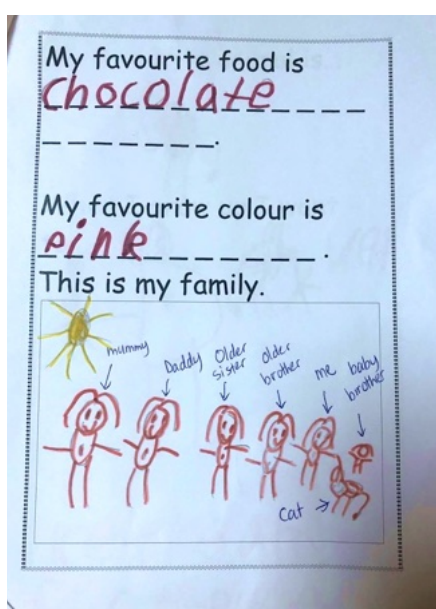 My favourite food is
chocolate
My favourite colour is
pink
This is my family.
mummy
Daddy
Older
sister
older
brother
me
baby
brother
cat